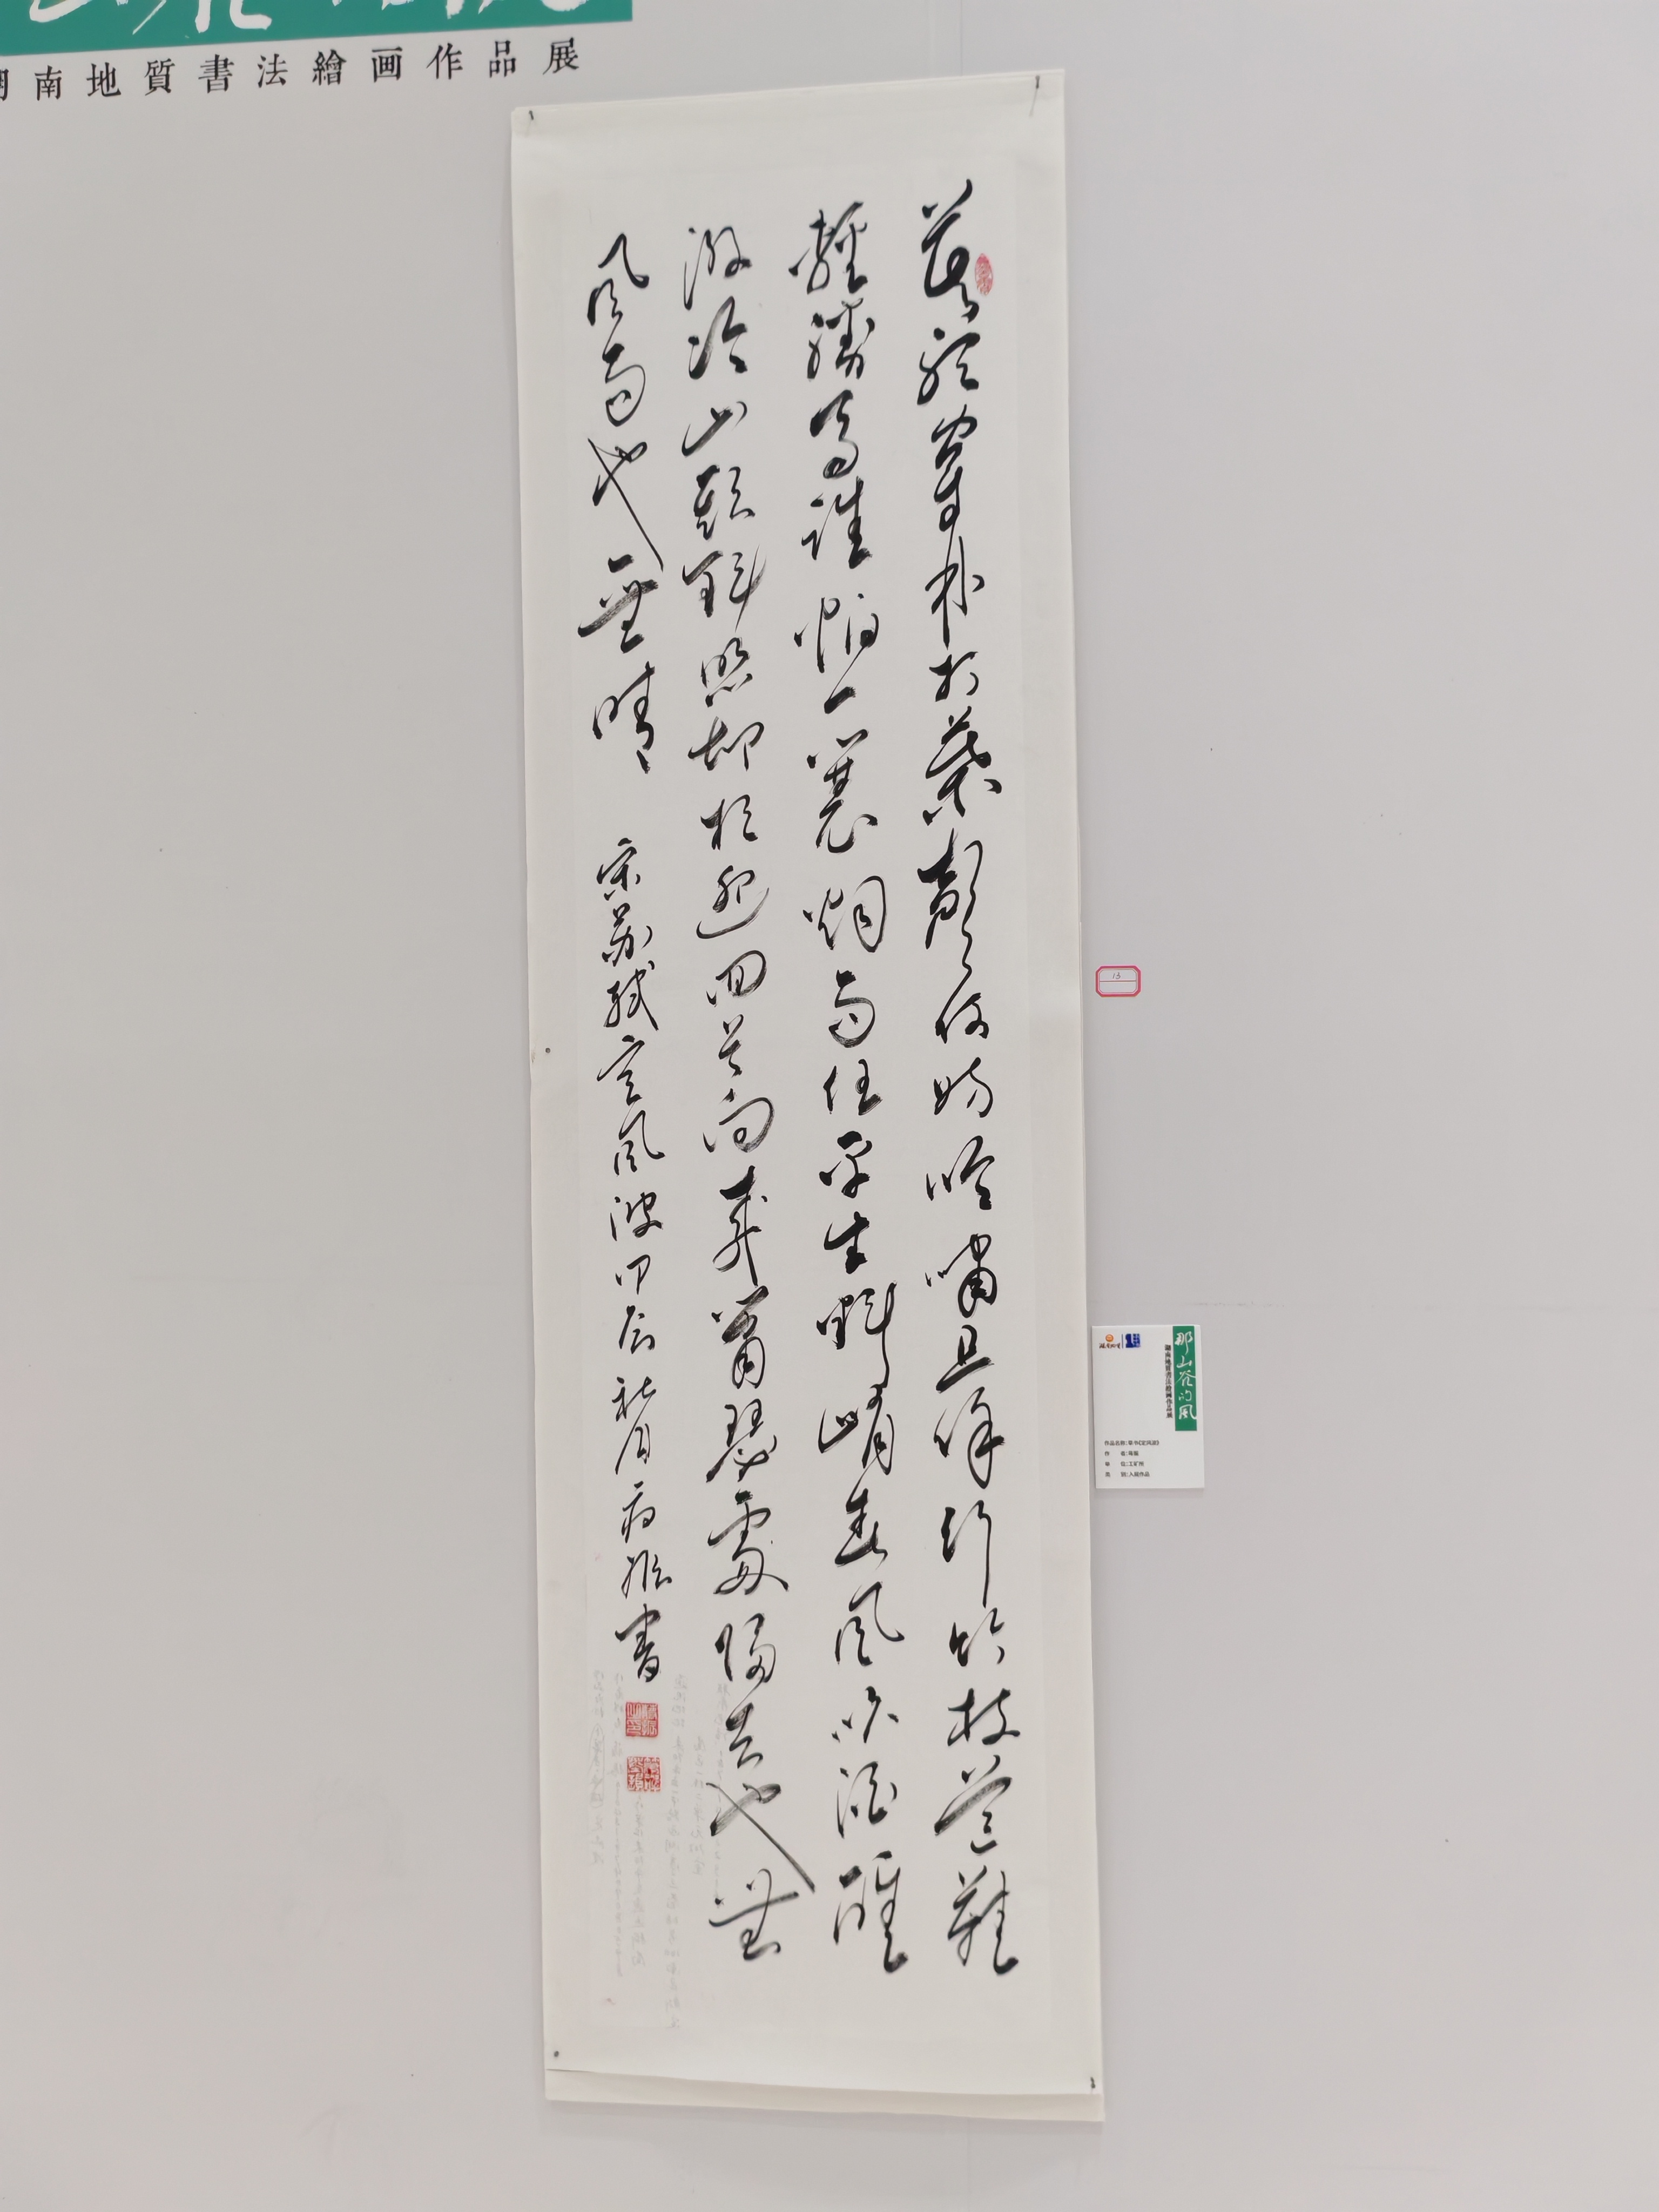 南地質書法繪画作品展
莫聽穿林打葉聲何妨吟嘯且徐行竹杖芒鞋
輕勝馬誰怕一蓑烟雨任平生料峭春風吹酒醒
微冷山頭斜照却相迎回首向来蕭瑟處歸去也無
風雨也無晴 宋蘇軾定風波甲辰社月 書
13
那山谷的風
湖南地質書法繪画作品展
作品名称:草书《定风波》
作 者:
单 位:工矿所
类 别:入展作品